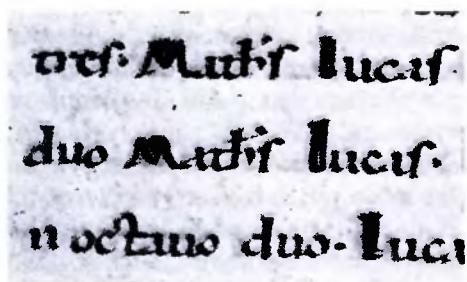 tres. Math's lucas
duo Math's lucas.
n octauo duo. luca